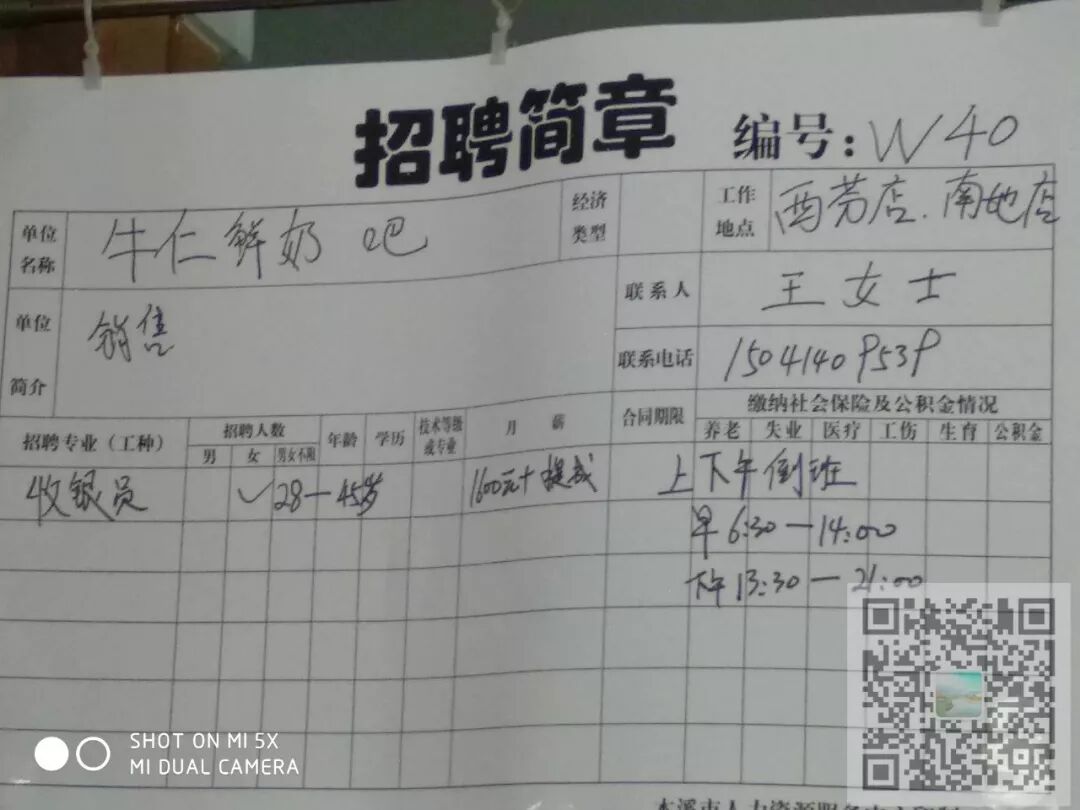 招聘简章 编号:W40
单位名称 牛仁鲜奶吧 经济类型 工作地点 西芬店.南地店
单位简介 销售 联系人 王女士
联系电话 15041409539
招聘专业(工种) 招聘人数 年龄 学历 技术等级或专业 月薪 合同期限 缴纳社会保险及公积金情况
男 女 男女不限 养老 失业 医疗 工伤 生育 公积金
收银员 ✓ 28—45岁 1600元+提成 上下午倒班
早6:30—14:00
下午13:30—21:00
SHOT ON MI 5X
MI DUAL CAMERA
本溪市人力资源服务